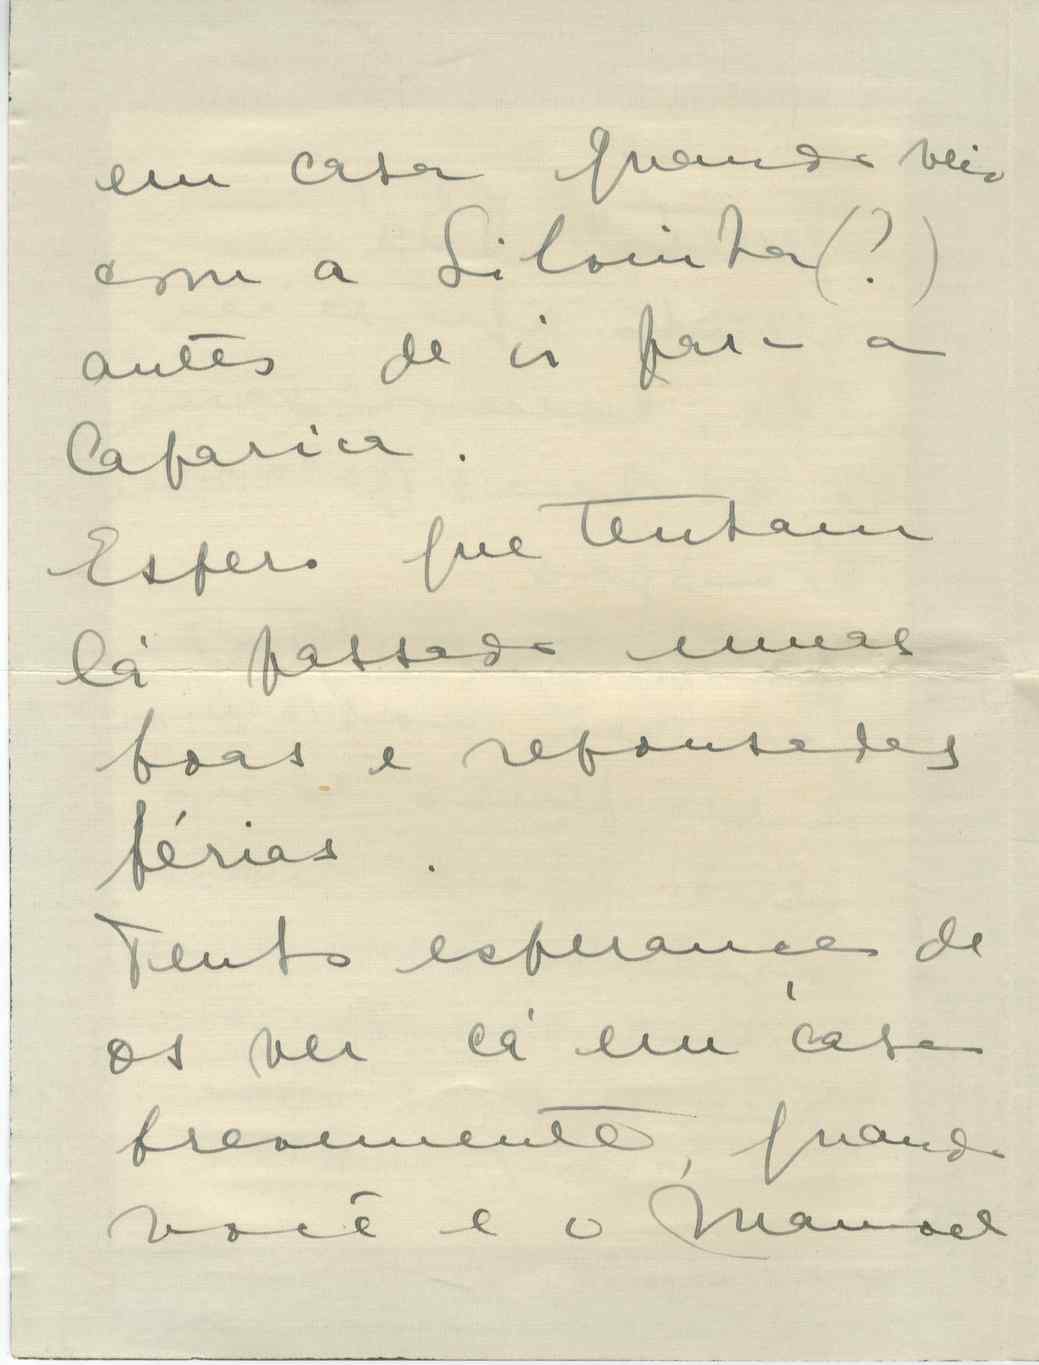 em casa quando veio
com a Silvinha (?)
antes de ir para a
Caparica.
Espero que tenham
lá passado umas
boas e repousadas
férias.
Tenho esperança de
os ver cá em casa
brevemente, quando
você e o Manoel